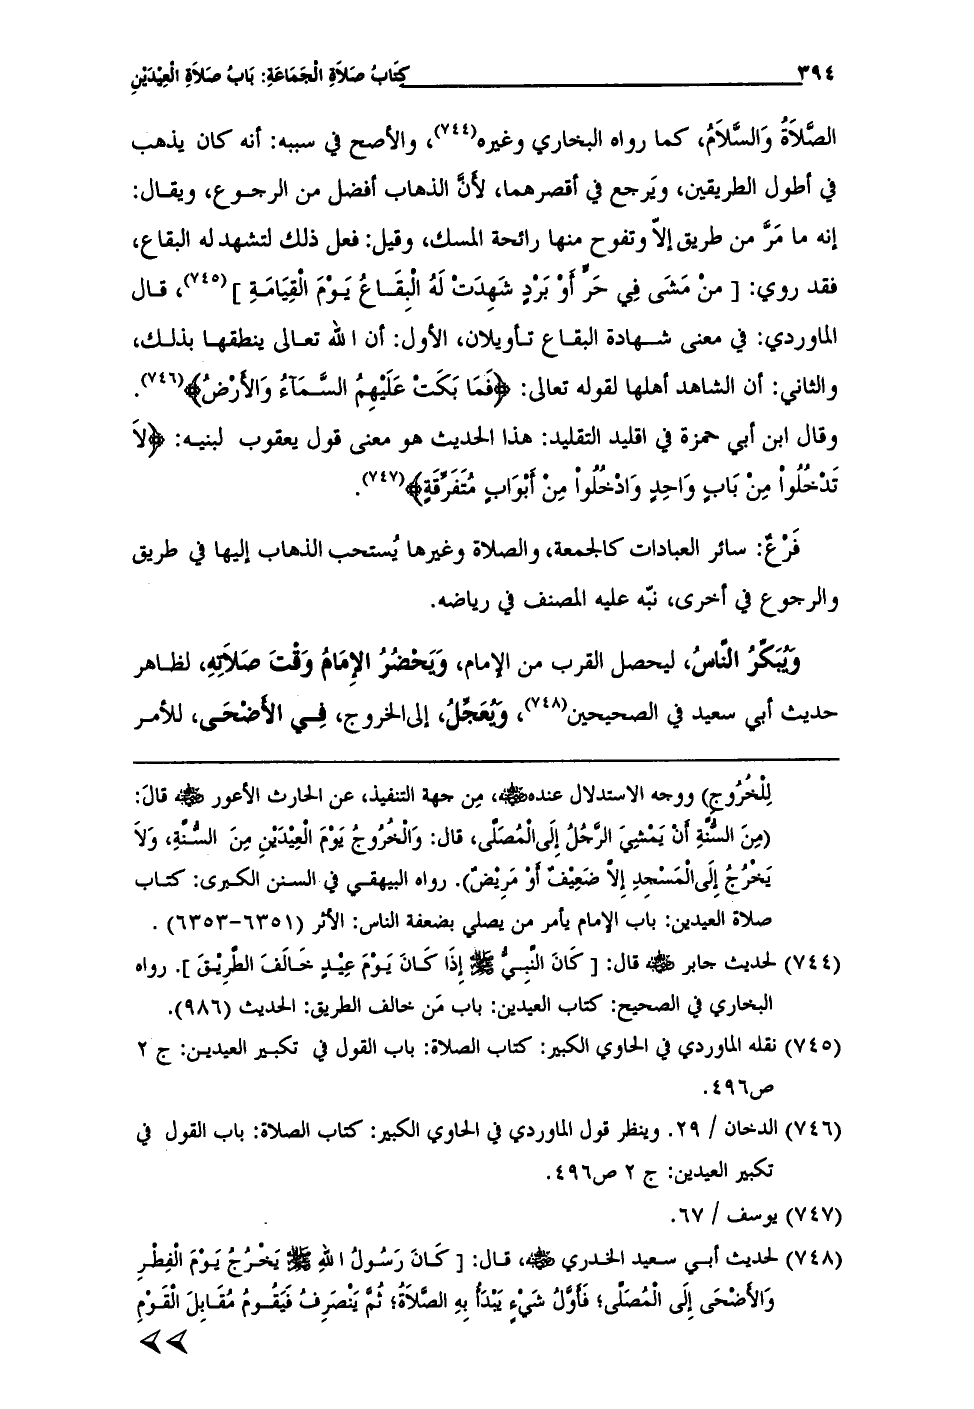 ٣٩٤ كِتَابُ صَلاَةِ الْجَمَاعَةِ: بَابُ صَلاَةِ الْعِيْدَيْنِ
الصَّلاَةُ وَالسَّلاَمُ، كما رواه البخاري وغيره(٧٤٤)، والأصح في سببه: أنه كان يذهب
في أطول الطريقين، ويَرجع في أقصرهما، لأنَّ الذهاب أفضل من الرجوع، ويقال:
إنه ما مَرَّ من طريق إلاّ وتفوح منها رائحة المسك، وقيل: فعل ذلك لتشهد له البقاع،
فقد روي: [ منْ مَشَى فِي حَرٍّ أَوْ بَرْدٍ شَهِدَتْ لَهُ الْبِقَاعُ يَوْمَ الْقِيَامَةِ ](٧٤٥)، قال
الماوردي: في معنى شهادة البقاع تأويلان، الأول: أن الله تعالى ينطقها بذلك،
والثاني: أن الشاهد أهلها لقوله تعالى: ﴿فَمَا بَكَتْ عَلَيْهِمُ السَّمَآءُ وَالأَرْضُ﴾(٧٤٦).
وقال ابن أبي حمزة في اقليد التقليد: هذا الحديث هو معنى قول يعقوب لبنيه: ﴿لاَ
تَدْخُلُواْ مِنْ بَابٍ وَاحِدٍ وَادْخُلُواْ مِنْ أَبْوَابٍ مُتَفَرِّقَةٍ﴾(٧٤٧).
فَرْعٌ: سائر العبادات كالجمعة، والصلاة وغيرها يُستحب الذهاب إليها في طريق
والرجوع في أخرى، نبّه عليه المصنف في رياضه.
وَيُبَكِّرُ النَّاسُ، ليحصل القرب من الإمام، وَيَحْضُرُ الإِمَامُ وَقْتَ صَلاَتِهِ، لظاهر
حديث أبي سعيد في الصحيحين(٧٤٨)، وَيُعَجِّلُ، إلى الخروج، فِي الأَضْحَى، للأمر
لِلْخُرُوجِ) ووجه الاستدلال عنده، مِن جهة التنفيذ، عن الحارث الأعور قالَ:
(مِنَ السُّنَّةِ أَنْ يَمْشِيَ الرَّجُلُ إِلَى الْمُصَلَّى، قال: وَالْخُرُوجُ يَوْمَ الْعِيْدَيْنِ مِنَ السُّنَّةِ، وَلاَ
يَخْرُجُ إِلَى الْمَسْجِدِ إِلاَّ ضَعِيْفٌ أَوْ مَرِيْضٌ). رواه البيهقي في السنن الكبرى: كتاب
صلاة العيدين: باب الإمام يأمر من يصلي بضعفة الناس: الأثر (٦٣٥١-٦٣٥٣) .
(٧٤٤) لحديث جابر قال: [ كَانَ النَّبِيُّ ﷺ إِذَا كَانَ يَوْمَ عِيْدٍ خَالَفَ الطَّرِيْقَ ]. رواه
البخاري في الصحيح: كتاب العيدين: باب مَن خالف الطريق: الحديث (٩٨٦).
(٧٤٥) نقله الماوردي في الحاوي الكبير: كتاب الصلاة: باب القول في تكبير العيدين: ج ٢
ص٤٩٦.
(٧٤٦) الدخان / ٢٩. وينظر قول الماوردي في الحاوي الكبير: كتاب الصلاة: باب القول في
تكبير العيدين: ج ٢ ص٤٩٦.
(٧٤٧) يوسف / ٦٧.
(٧٤٨) لحديث أبي سعيد الخدري، قال: [ كَانَ رَسُولُ اللهِ ﷺ يَخْرُجُ يَوْمَ الْفِطْرِ
وَالأَضْحَى إِلَى الْمُصَلَّى؛ فَأَوَّلُ شَيْءٍ يَبْدَأُ بِهِ الصَّلاَةُ؛ ثُمَّ يَنْصَرِفُ فَيَقُومُ مُقَابِلَ الْقَوْمِ